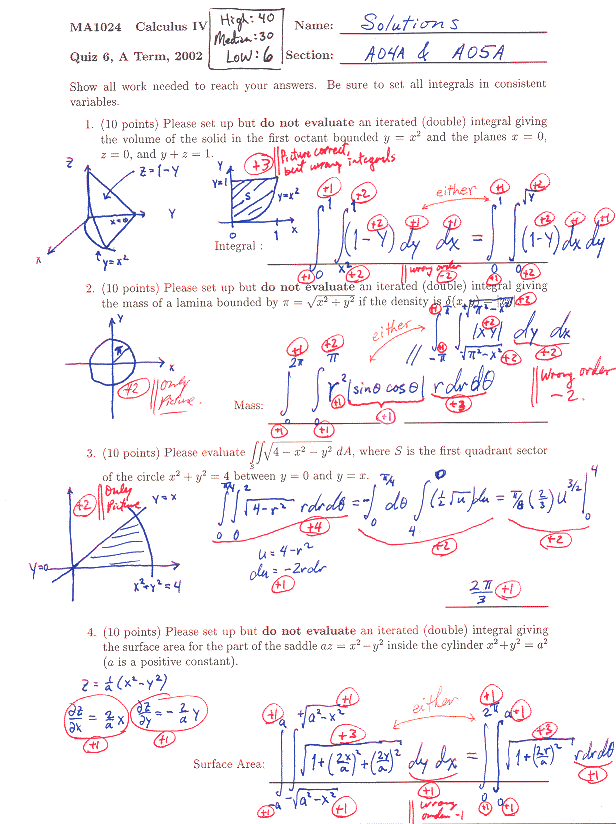 MA1024 Calculus IV
High: 40
Median: 30
Low: 6
Name: Solutions
Quiz 6, A Term, 2002
Section: A04A & A05A
Show all work needed to reach your answers. Be sure to set all integrals in consistent
variables.
1. (10 points) Please set up but do not evaluate an iterated (double) integral giving
the volume of the solid in the first octant bounded y = x² and the planes x = 0,
z = 0, and y + z = 1.
+3 Picture correct, but wrong integrals
z
z=1-y
x=0
Y
x
y=x²
Y
Y=1
S
y=x²
0
1
x
either
Integral : ∫₀¹ ∫_{x²}^1 (1-y) dy dx = ∫₀¹ ∫₀^{√y} (1-y) dx dy
+1 +2 +2 +1 +1
wrong order -2
2. (10 points) Please set up but do not evaluate an iterated (double) integral giving
the mass of a lamina bounded by π = √(x² + y²) if the density is δ(x, y) = |xy|
Y
π
x
+2 only Picture.
either
// ∫_{-π}^{π} ∫_{-√(π²-x²)}^{+√(π²-x²)} |xy| dy dx
Wrong order -2.
Mass: ∫₀^{2π} ∫₀^π r² |sinθ cosθ| r dr dθ
+1 +1 +1 +3
3. (10 points) Please evaluate ∫∫_S √(4 − x² − y²) dA, where S is the first quadrant sector
of the circle x² + y² = 4 between y = 0 and y = x.
+2 only Picture
y=x
y=0
x²+y²=4
∫₀^{π/4} ∫₀² √(4-r²) r dr dθ = -∫₀^{π/4} dθ ∫₄⁰ (½√u) du = π/8 (2/3) u^{3/2} |₀⁴
+4 +2 +2
u = 4-r²
du = -2rdr
+1
2π/3 +1
4. (10 points) Please set up but do not evaluate an iterated (double) integral giving
the surface area for the part of the saddle az = x² − y² inside the cylinder x² + y² = a²
(a is a positive constant).
z = 1/a (x²-y²)
∂z/∂x = 2/a x
∂z/∂y = -2/a y
+1 +1
either
Surface Area: ∫_{-a}^{a} ∫_{-√(a²-x²)}^{+√(a²-x²)} √(1+(2x/a)²+(2y/a)²) dy dx = ∫₀^{2π} ∫₀^a √(1+(2r/a)²) r dr dθ
+1 +1 +3 +1 +1 +3 +1
wrong order -1